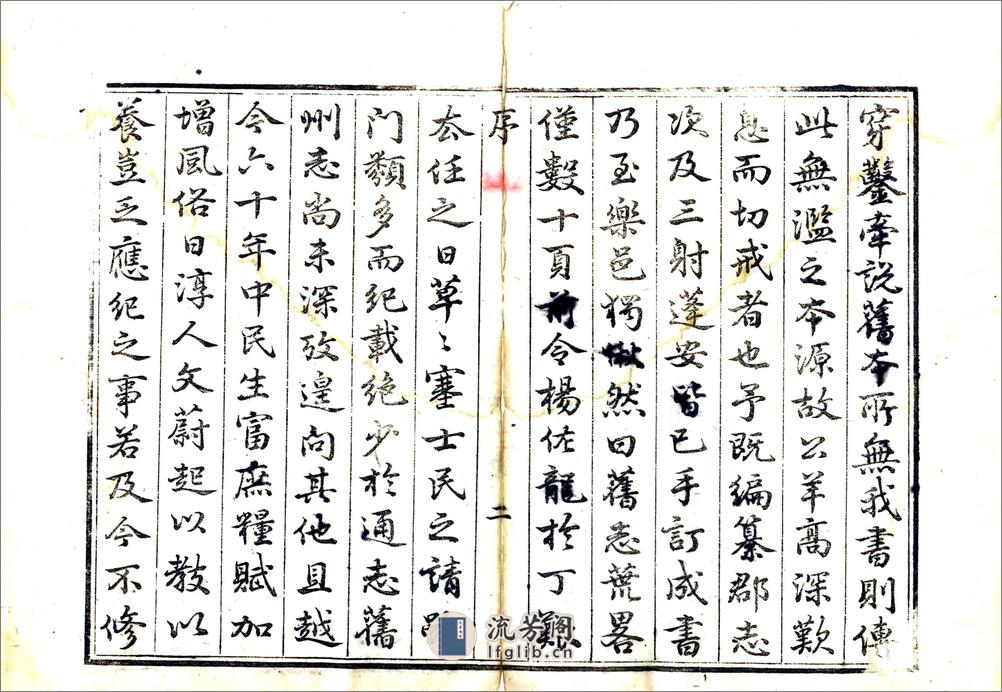 穿鑿牽說舊本所無我書則傳
此無濫之本源故公羊高深歎
息而切戒者也予既編纂郡志
次及三射蓬安皆已手訂成書
乃至樂邑獨愀然曰舊志荒畧
僅數十頁前令楊佐龍於丁艱
序
二
去任之日草〻塞士民之請
門類多而紀載絶少於通志舊
州志尚未深攷遑問其他且越
今六十年中民生富庶糧賦加
增風俗日淳人文蔚起以教以
養豈乏應紀之事若及今不修
流芳阁
lfglib.cn